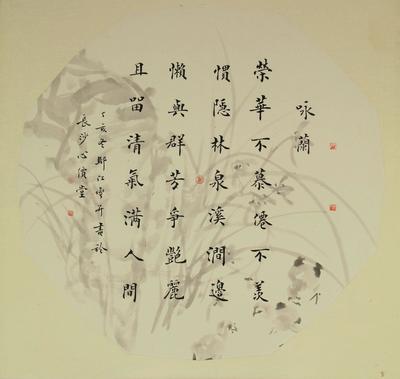 咏蘭
榮華不慕僊不羨
慣隱林泉溪澗邊
懶與群芳爭艷麗
且留清氣滿人間
丁亥冬江書於
長沙心堂